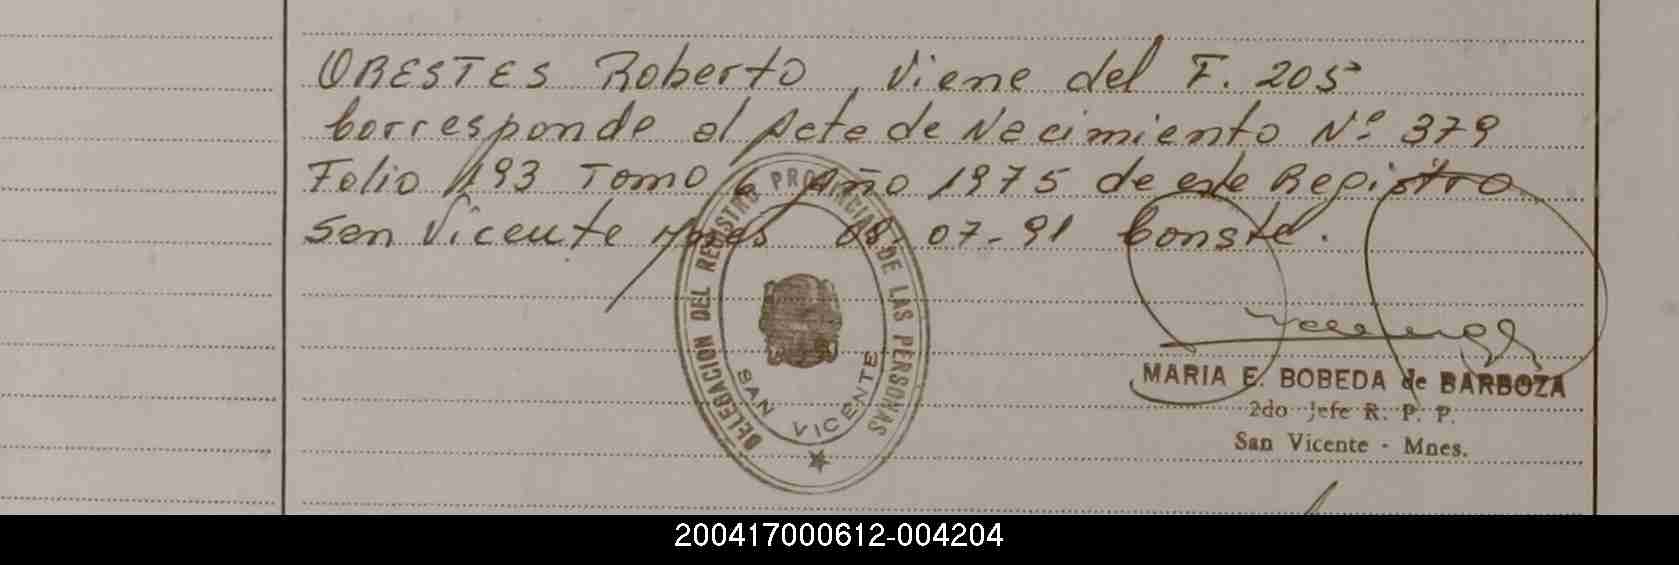 ORESTES Roberto, Viene del F. 205
Corresponde al Acta de Nacimiento Nº 379
Folio 193 Tomo 6 Año 1975 de este Registro
San Vicente Mnes 08-07-91 Conste.
DELEGACION DEL REGISTRO PROVINCIAL DE LAS PERSONAS
SAN VICENTE
MARIA E. BOBEDA de BARBOZA
2do Jefe R. P. P.
San Vicente - Mnes.
200417000612-004204